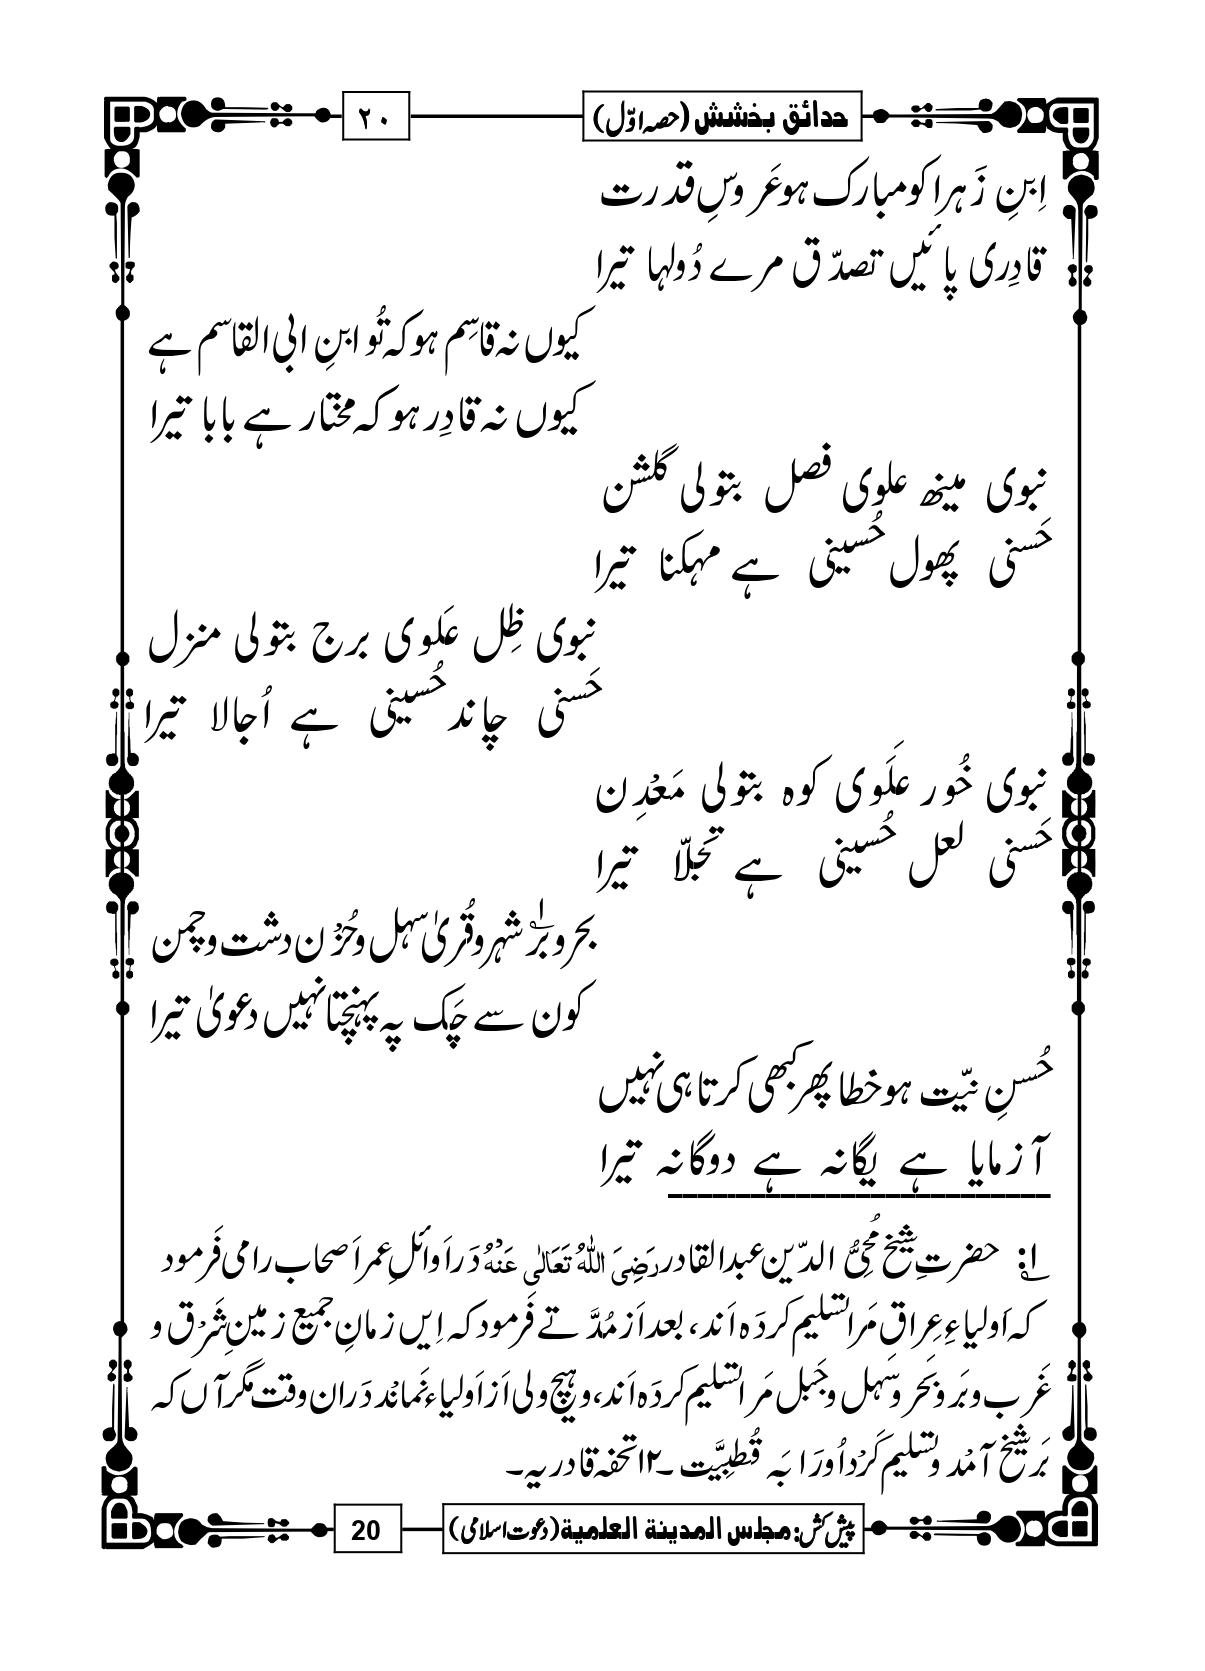 حدائق بخشش (حصہ اوّل)
۲۰
اِبنِ زَہرا کو مبارک ہو عَروسِ قدرت
قادِری پائیں تصدّق مرے دُولہا تیرا
کیوں نہ قاسِم ہو کہ تُو ابنِ ابی القاسم ہے
کیوں نہ قادِر ہو کہ مختار ہے بابا تیرا
نبوی مینھ علوی فصل بتولی گلشن
حَسنی پھول حُسینی ہے مہکنا تیرا
نبوی ظِل عَلوی برج بتولی منزل
حَسنی چاند حُسینی ہے اُجالا تیرا
نبوی خُور عَلَوی کوہ بتولی مَعْدِن
حَسنی لعل حُسینی ہے تجلّا تیرا
بحر و بر۱ شہر و قُریٰ سہل و حُزْن دشت و چمن
کون سے چَک پہ پہنچتا نہیں دعویٰ تیرا
حُسنِ نیّت ہو خطا پھر کبھی کرتا ہی نہیں
آزمایا ہے یگانہ ہے دوگانہ تیرا
۱: حضرتِ شیخ مُحیُّ الدّین عبدالقادر رَضِیَ اللہُ تَعَالٰی عَنْہُ دَر اَوائلِ عمر اَصحاب را می فَرمود
کہ اَولیاءِ عِراق مَرا تسلیم کردَہ اَند، بعد اَز مُدَّتے فَرمود کہ اِیں زمانِ جمیع زمینِ شَرْق و
غَرب و بَر و بَحر و سَہل و جَبل مَرا تسلیم کردَہ اَند، و ہیچ ولی اَز اَولیاء نَماند دَراں وقت مگر آں کہ
بَر شیخ آمْد و تسلیم کَرْد اُو رَا بَہ قُطبِیَّت ۔۱۲ تحفہ قادریہ۔
پیش کش: مجلس المدینۃ العلمیۃ (دعوت اسلامی)
20